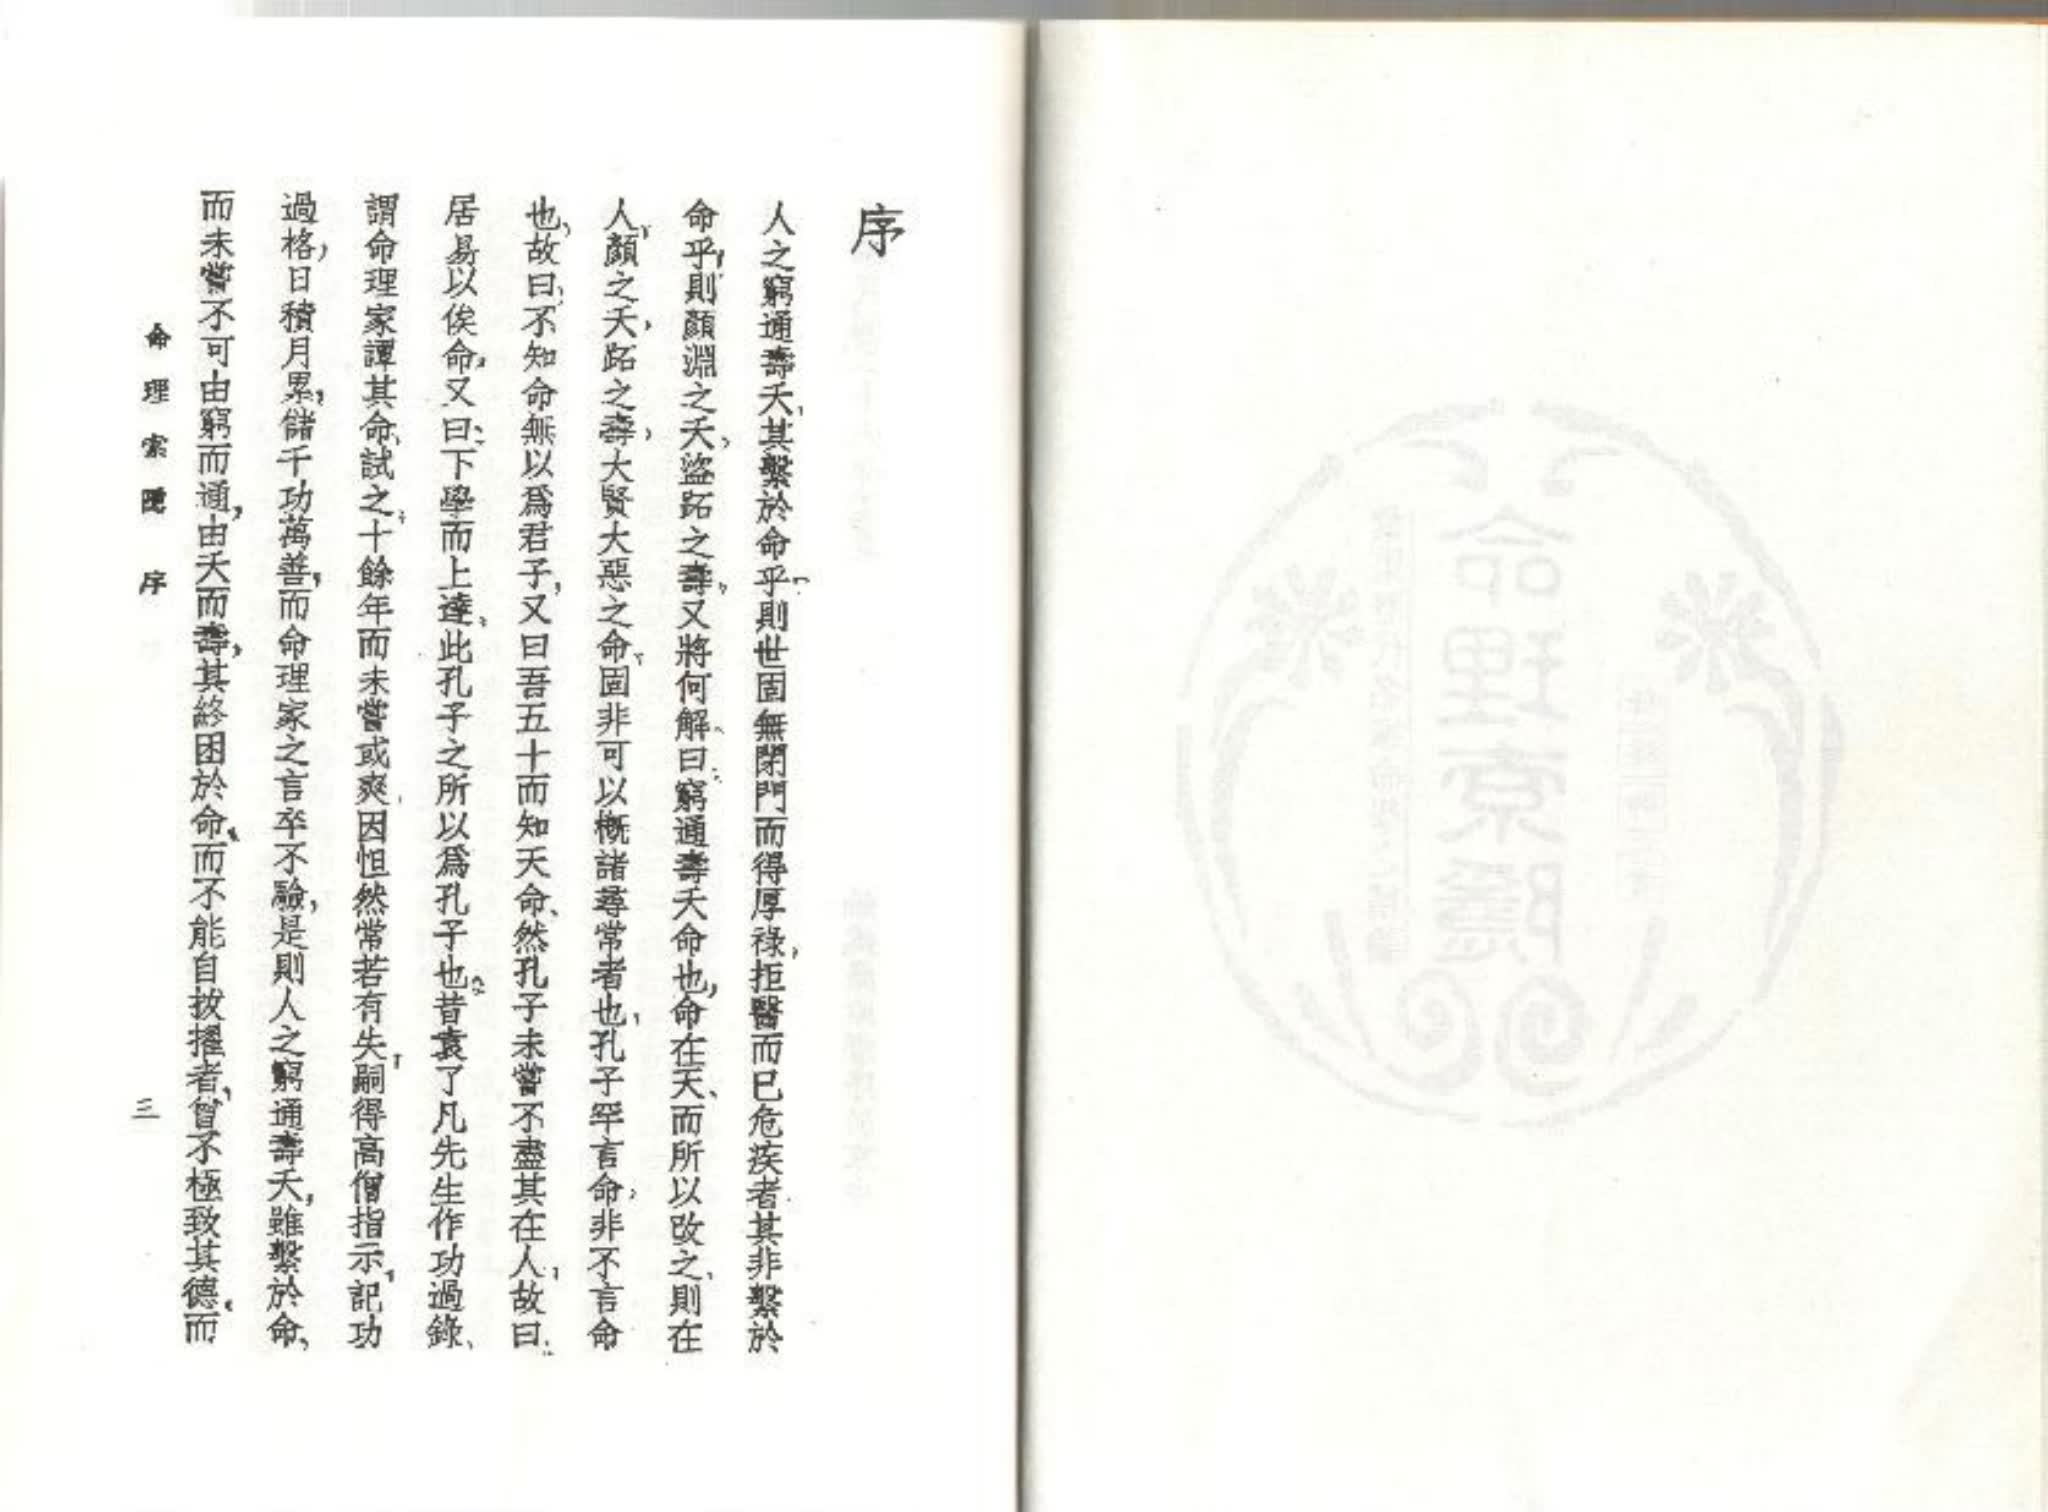 序
人之窮通壽夭，其繫於命乎，則世固無閉門而得厚祿，拒醫而已危疾者其非繫於
命乎，則顏淵之夭，盜跖之壽，又將何解、曰：窮通壽夭命也，命在天、而所以改之、則在
人，顏之夭，跖之壽，大賢大惡之命，固非可以概諸尋常者也，孔子罕言命，非不言命
也，故曰：不知命無以爲君子，又曰吾五十而知天命、然孔子未嘗不盡其在人，故曰：
居易以俟命，又曰：下學而上達、此孔子之所以爲孔子也。昔袁了凡先生作功過錄、
謂命理家譚其命、試之、十餘年而未嘗或爽、因怛然常若有失，嗣得高僧指示，記功
過格，日積月累，儲千功萬善，而命理家之言卒不驗，是則人之窮通壽夭，雖繫於命、
而未嘗不可由窮而通，由夭而壽，其終困於命、而不能自拔擢者、曾不極致其德、而
命理索隱 序
三
命理索隱